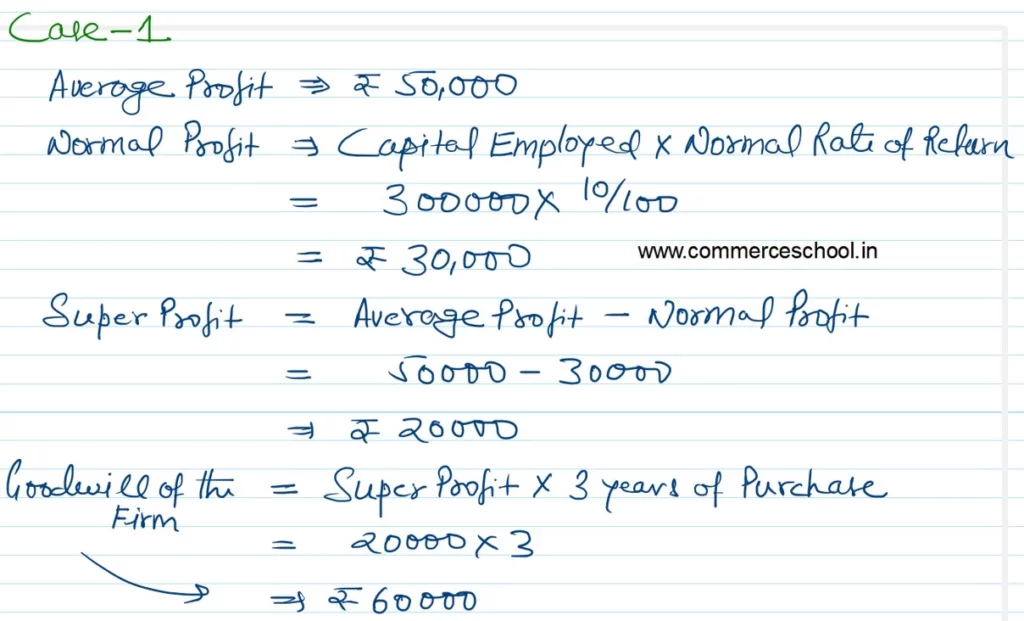 Case-1
Average Profit ⇒ ₹ 50,000
Normal Profit ⇒ Capital Employed × Normal Rate of Return
= 300000 × 10/100
= ₹ 30,000
www.commerceschool.in
Super Profit = Average Profit - Normal Profit
= 50000 - 30000
⇒ ₹ 20000
Goodwill of the Firm = Super Profit × 3 years of Purchase
= 20000 × 3
⇒ ₹ 60000